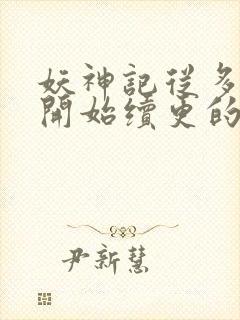 妖神記從多
開始續更的
尹新慧